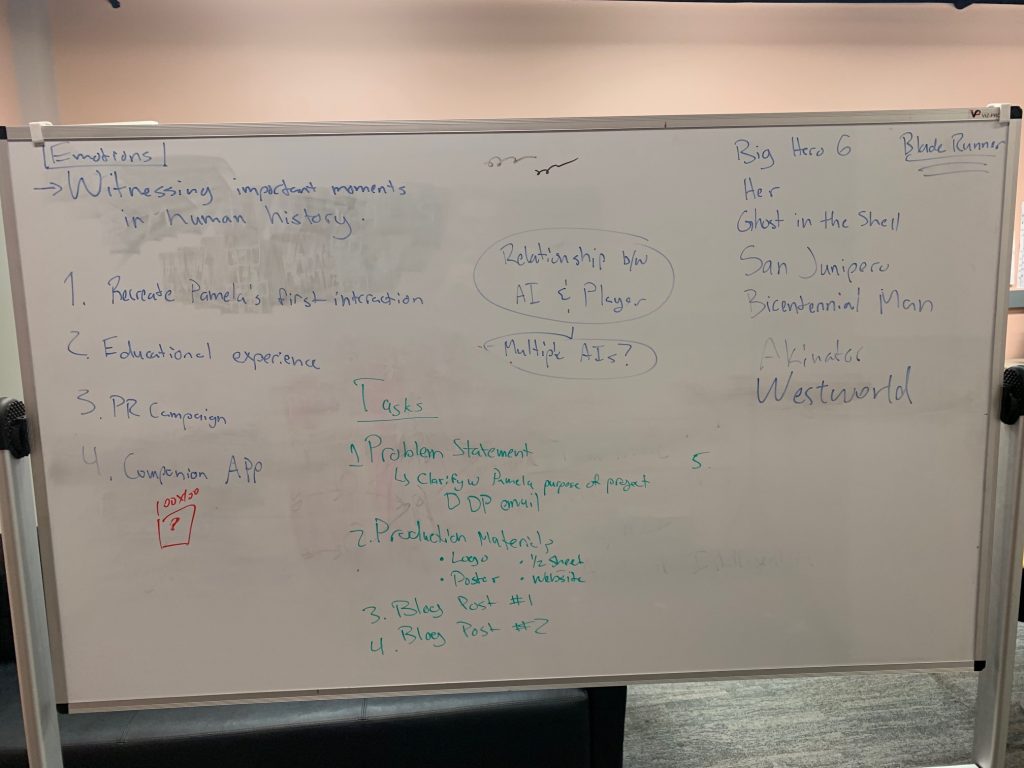 Emotions
→ Witnessing important moments
in human history.
1. Recreate Pamela's first interaction
2. Educational experience
3. PR Campaign
4. Companion App
100x100
?
Relationship b/w
AI & Player
Multiple AIs?
Tasks
1 Problem Statement
↳ Clarify w Pamela purpose of project
DDP email
2. Production Materials
• Logo • 1/2 sheet
• Poster • Website
3. Blog Post #1
4. Blog Post #2
5.
Big Hero 6
Blade Runner
Her
Ghost in the Shell
San Junipero
Bicentennial Man
Akinator
Westworld